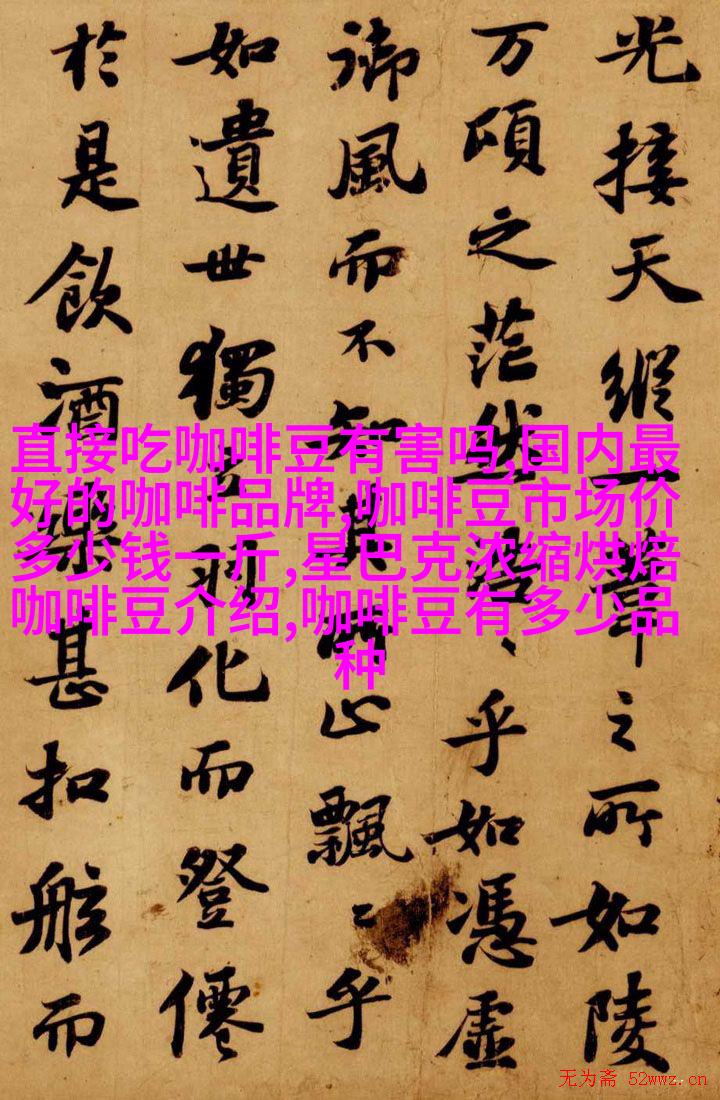 光接天縱一葦之所如陵
万頃之茫然浩〻乎如憑虛
御風而不知其所止飄〻乎
如遺世獨立羽化而登僊
於是飲酒樂甚扣舷而
直接吃咖啡豆有害吗,国内最
好的咖啡品牌,咖啡豆市场价
多少钱一斤,星巴克浓缩烘焙
咖啡豆介绍,咖啡豆有多少品
种
无为斋 52wwz.cn